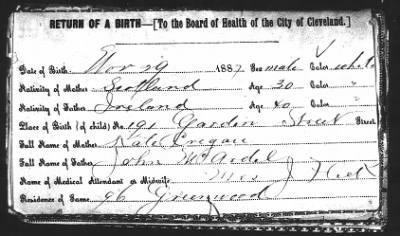 RETURN OF A BIRTH—[To the Board of Health of the City of Cleveland.]
Date of Birth Nov 29 1887 Sex male Color white
Nativity of Mother Scotland Age 30 Color "
Nativity of Father Ireland Age 40 Color "
Place of Birth (of child) No. 191 Garden Street Street
Full Name of Mother Kate
Full Name of Father John McArdel
Name of Medical Attendant or Midwife Mrs J
Residence of Same 96 Greenwood